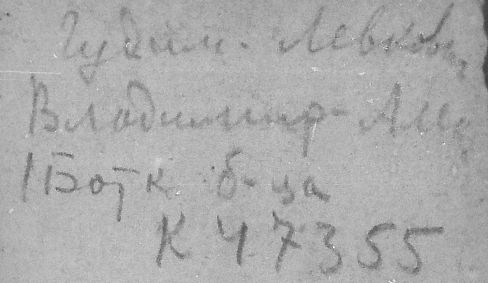 Гудим-Левкович
Владимир Але
1 Ботк б-ца
К 47355